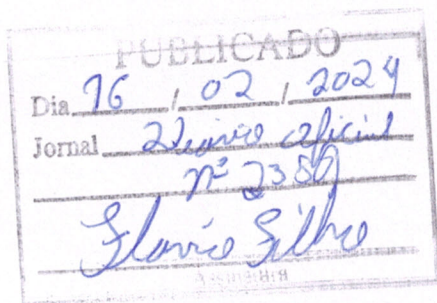 PUBLICADO
Dia 16 / 02 / 2024
Jornal Diário Oficial
nº 2389
Flavio Silho
Assinatura